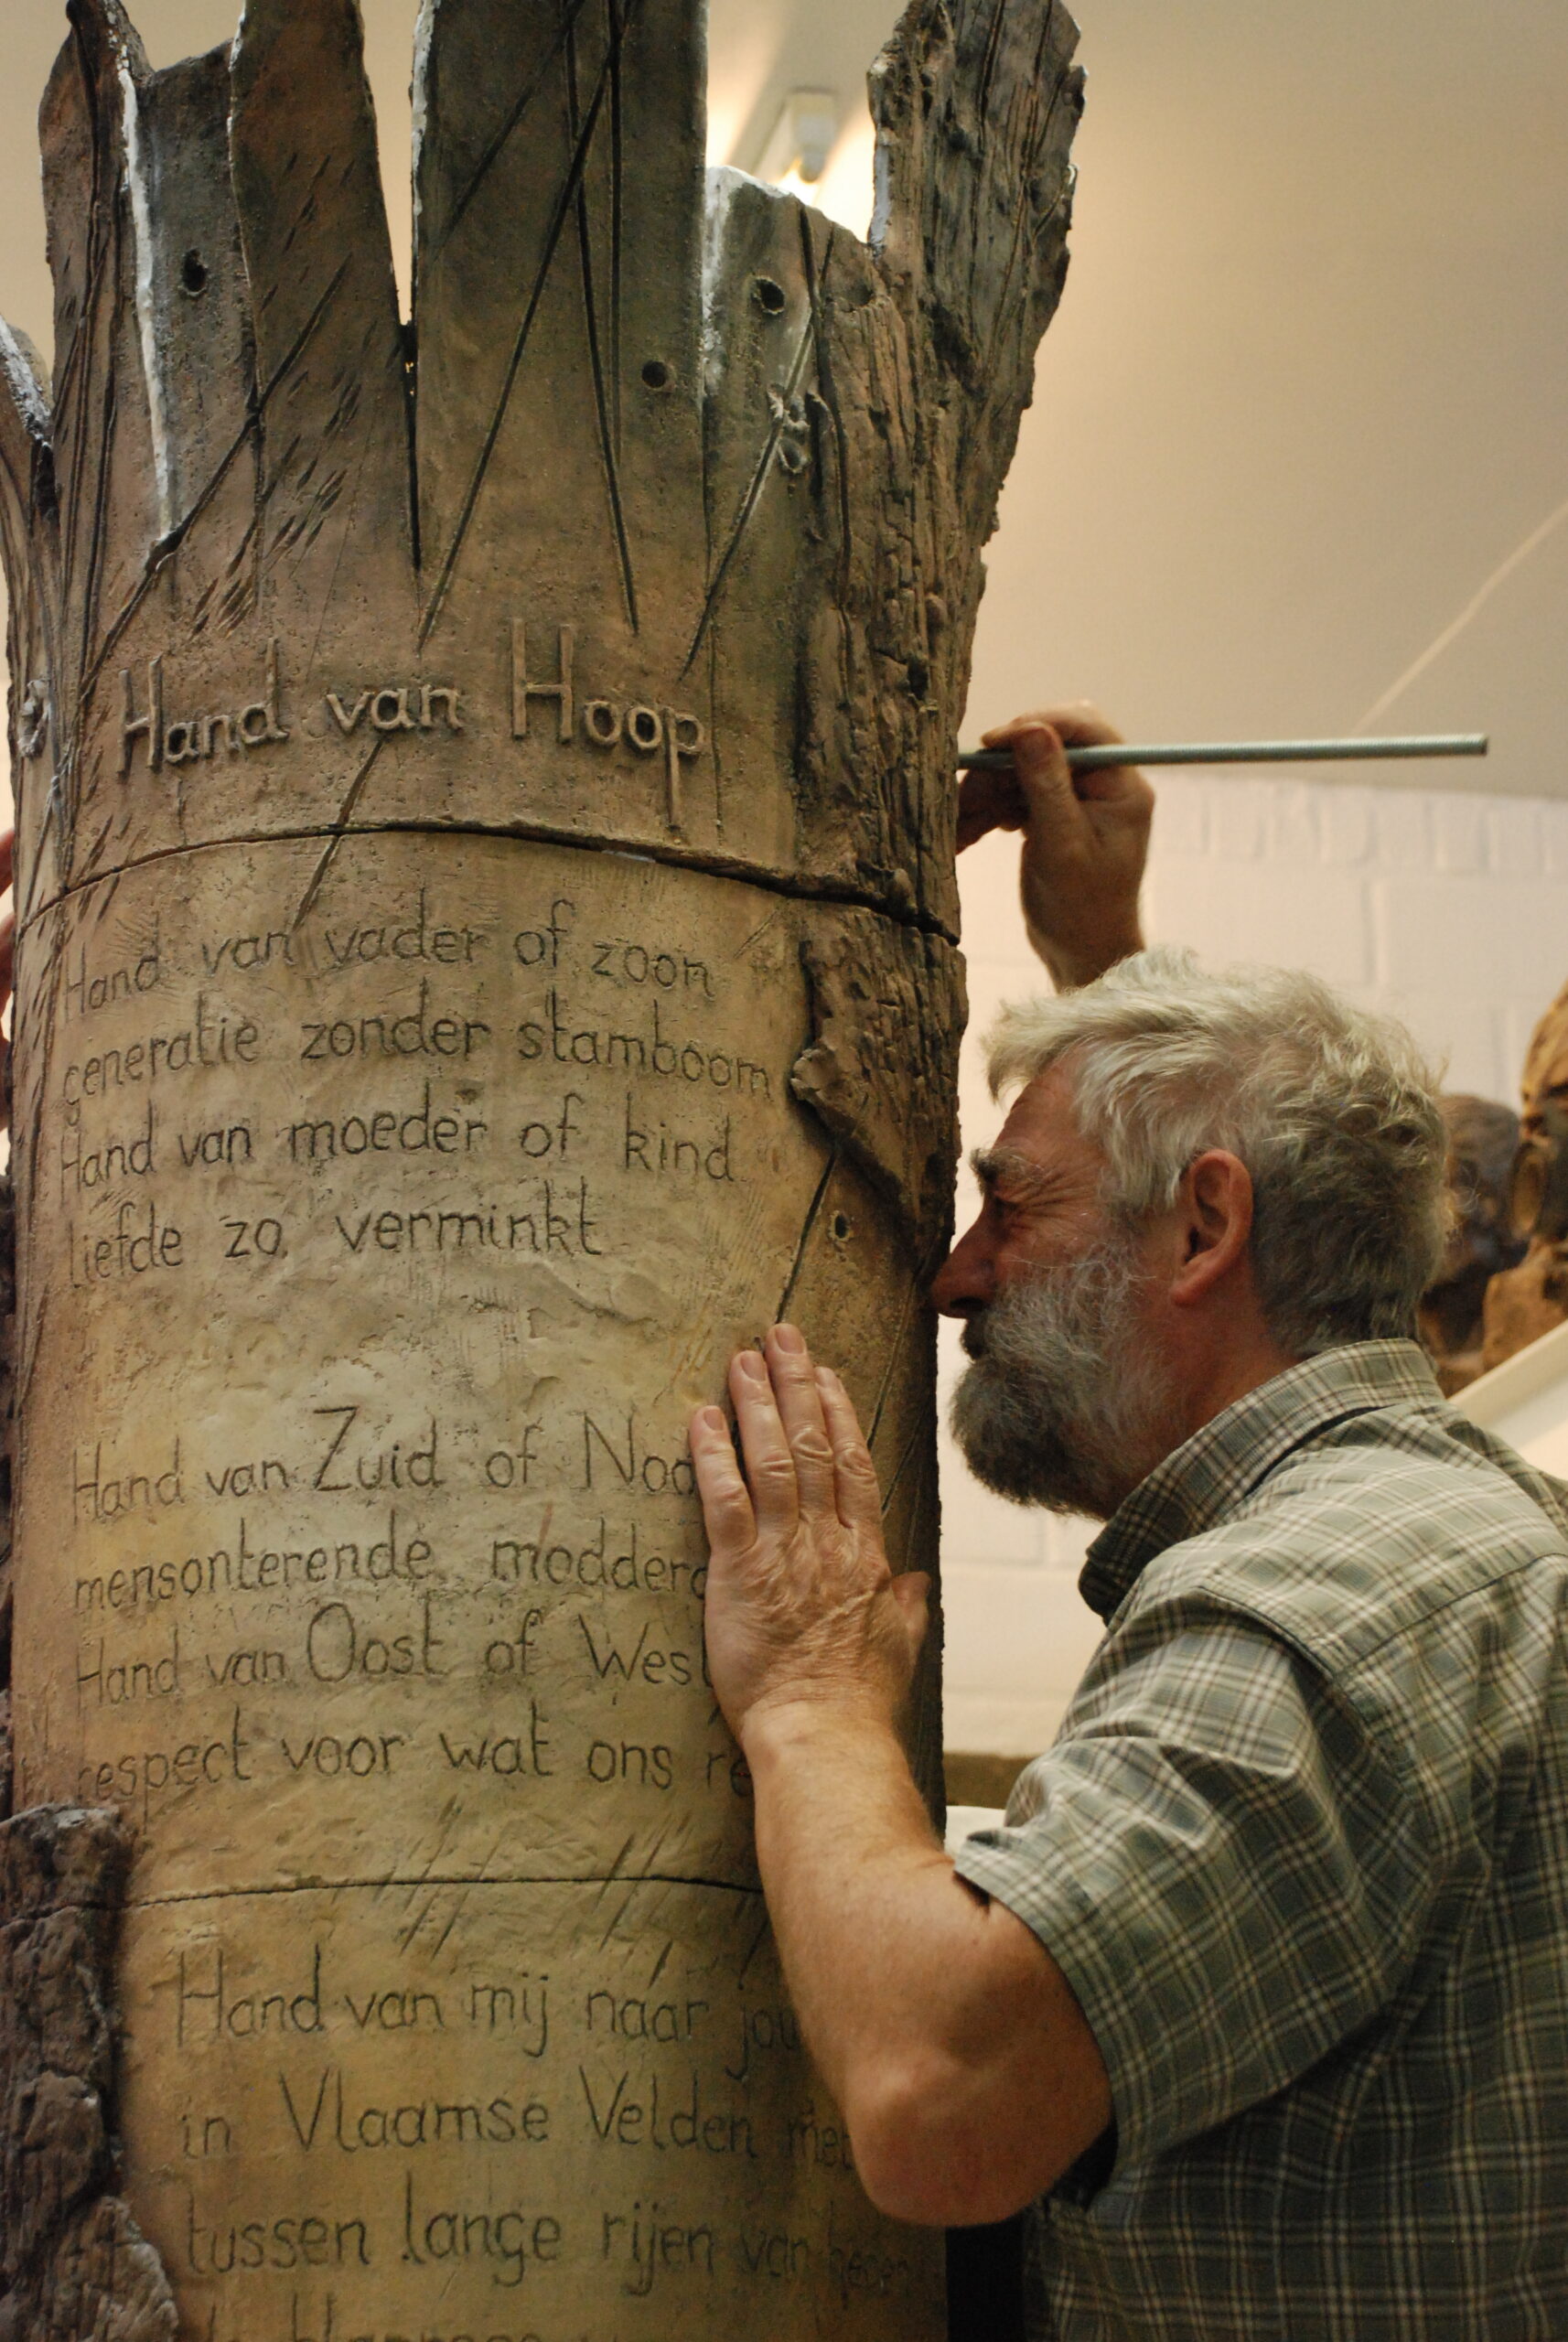 Hand van Hoop
Hand van vader of zoon
generatie zonder stamboom
Hand van moeder of kind
liefde zo verminkt
Hand van Zuid of
mensonterende
Hand van Oost of
respect voor wat ons
Hand van mij naar
in Vlaamse Velden
tussen lange rijen van